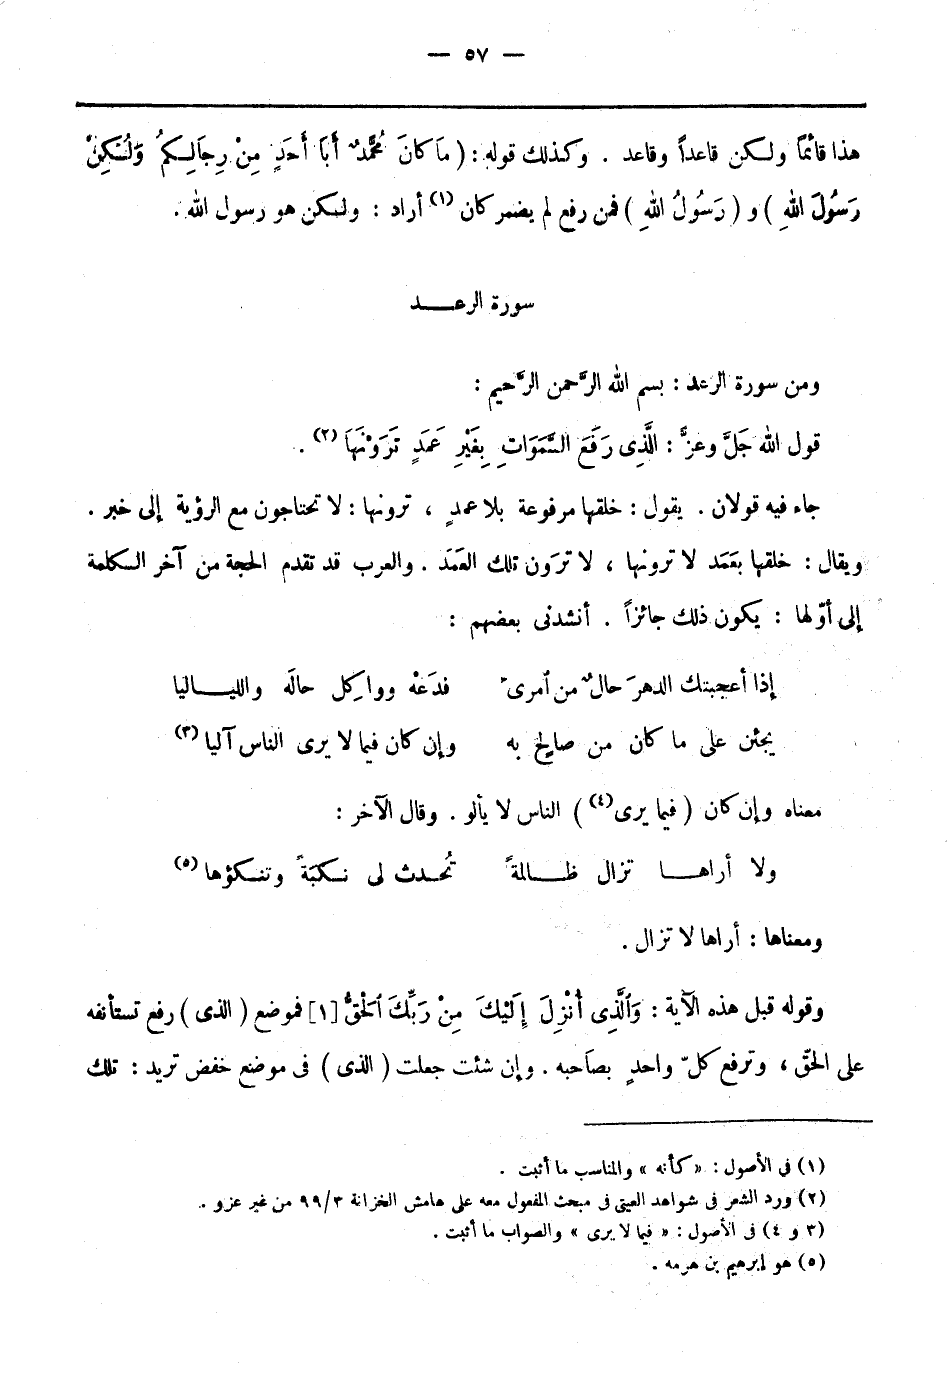 — ٥٧ —
هذا قائمًا ولكن قاعداً وقاعد . وكذلك قوله : ( مَا كَانَ مُحَمَّدٌ أَبَا أَحَدٍ مِنْ رِجَالِكُمْ وَلَٰكِنْ
رَسُولَ اللهِ ) و ( رَسُولُ اللهِ ) فمن رفع لم يضمر كان (١) أراد : ولكن هو رسول الله .
سورة الرعـــد
ومن سورة الرعد : بسم الله الرَّحمن الرَّحيم :
قول الله جَلَّ وعزَّ : الَّذِى رَفَعَ السَّمَوَاتِ بِغَيْرِ عَمَدٍ تَرَوْنَهَا (٢) .
جاء فيه قولان . يقول : خلقها مرفوعة بلا عمدٍ ، ترونها : لا تحتاجون مع الرؤية إلى خبر .
ويقال : خلقها بعَمَد لا ترونها ، لا ترَون تلك العَمَدَ . والعرب قد تقدم الحجة من آخر الكلمة
إلى أوّلها : يكون ذلك جائزاً . أنشدنى بعضهم :
إذا أعجبتك الدهرَ حالٌ من امرىءٍ فدَعْه وواكِل حالَه والليـــاليا
يجئن على ما كان من صالِحٍ به وإن كان فيما لا يرى الناس آليا (٣)
معناه وإن كان ( فيما يرى (٤) ) الناس لا يألو . وقال الآخر :
ولا أراهـــا تزال ظـــالمةً تُحـدث لى نكبَةً وتنكؤها (٥)
ومعناها : أراها لا تزال .
وقوله قبل هذه الآية : وَالَّذِى أُنْزِلَ إِلَيْكَ مِنْ رَبِّكَ الْحَقُّ [١] فموضع ( الذى ) رفع تستأنفه
على الحقّ ، وترفع كلّ واحدٍ بصاحبه . وإن شئت جعلت ( الذى ) فى موضع خفض تريد : تلك
(١) فى الأصول : « كأنه » والمناسب ما أثبت .
(٢) ورد الشعر فى شواهد العينى فى مبحث المفعول معه على هامش الخزانة ٩٩/٣ من غير عزو .
(٣ و ٤) فى الأصول : « فيما لا يرى » والصواب ما أثبت .
(٥) هو إبرهيم بن هرمه .